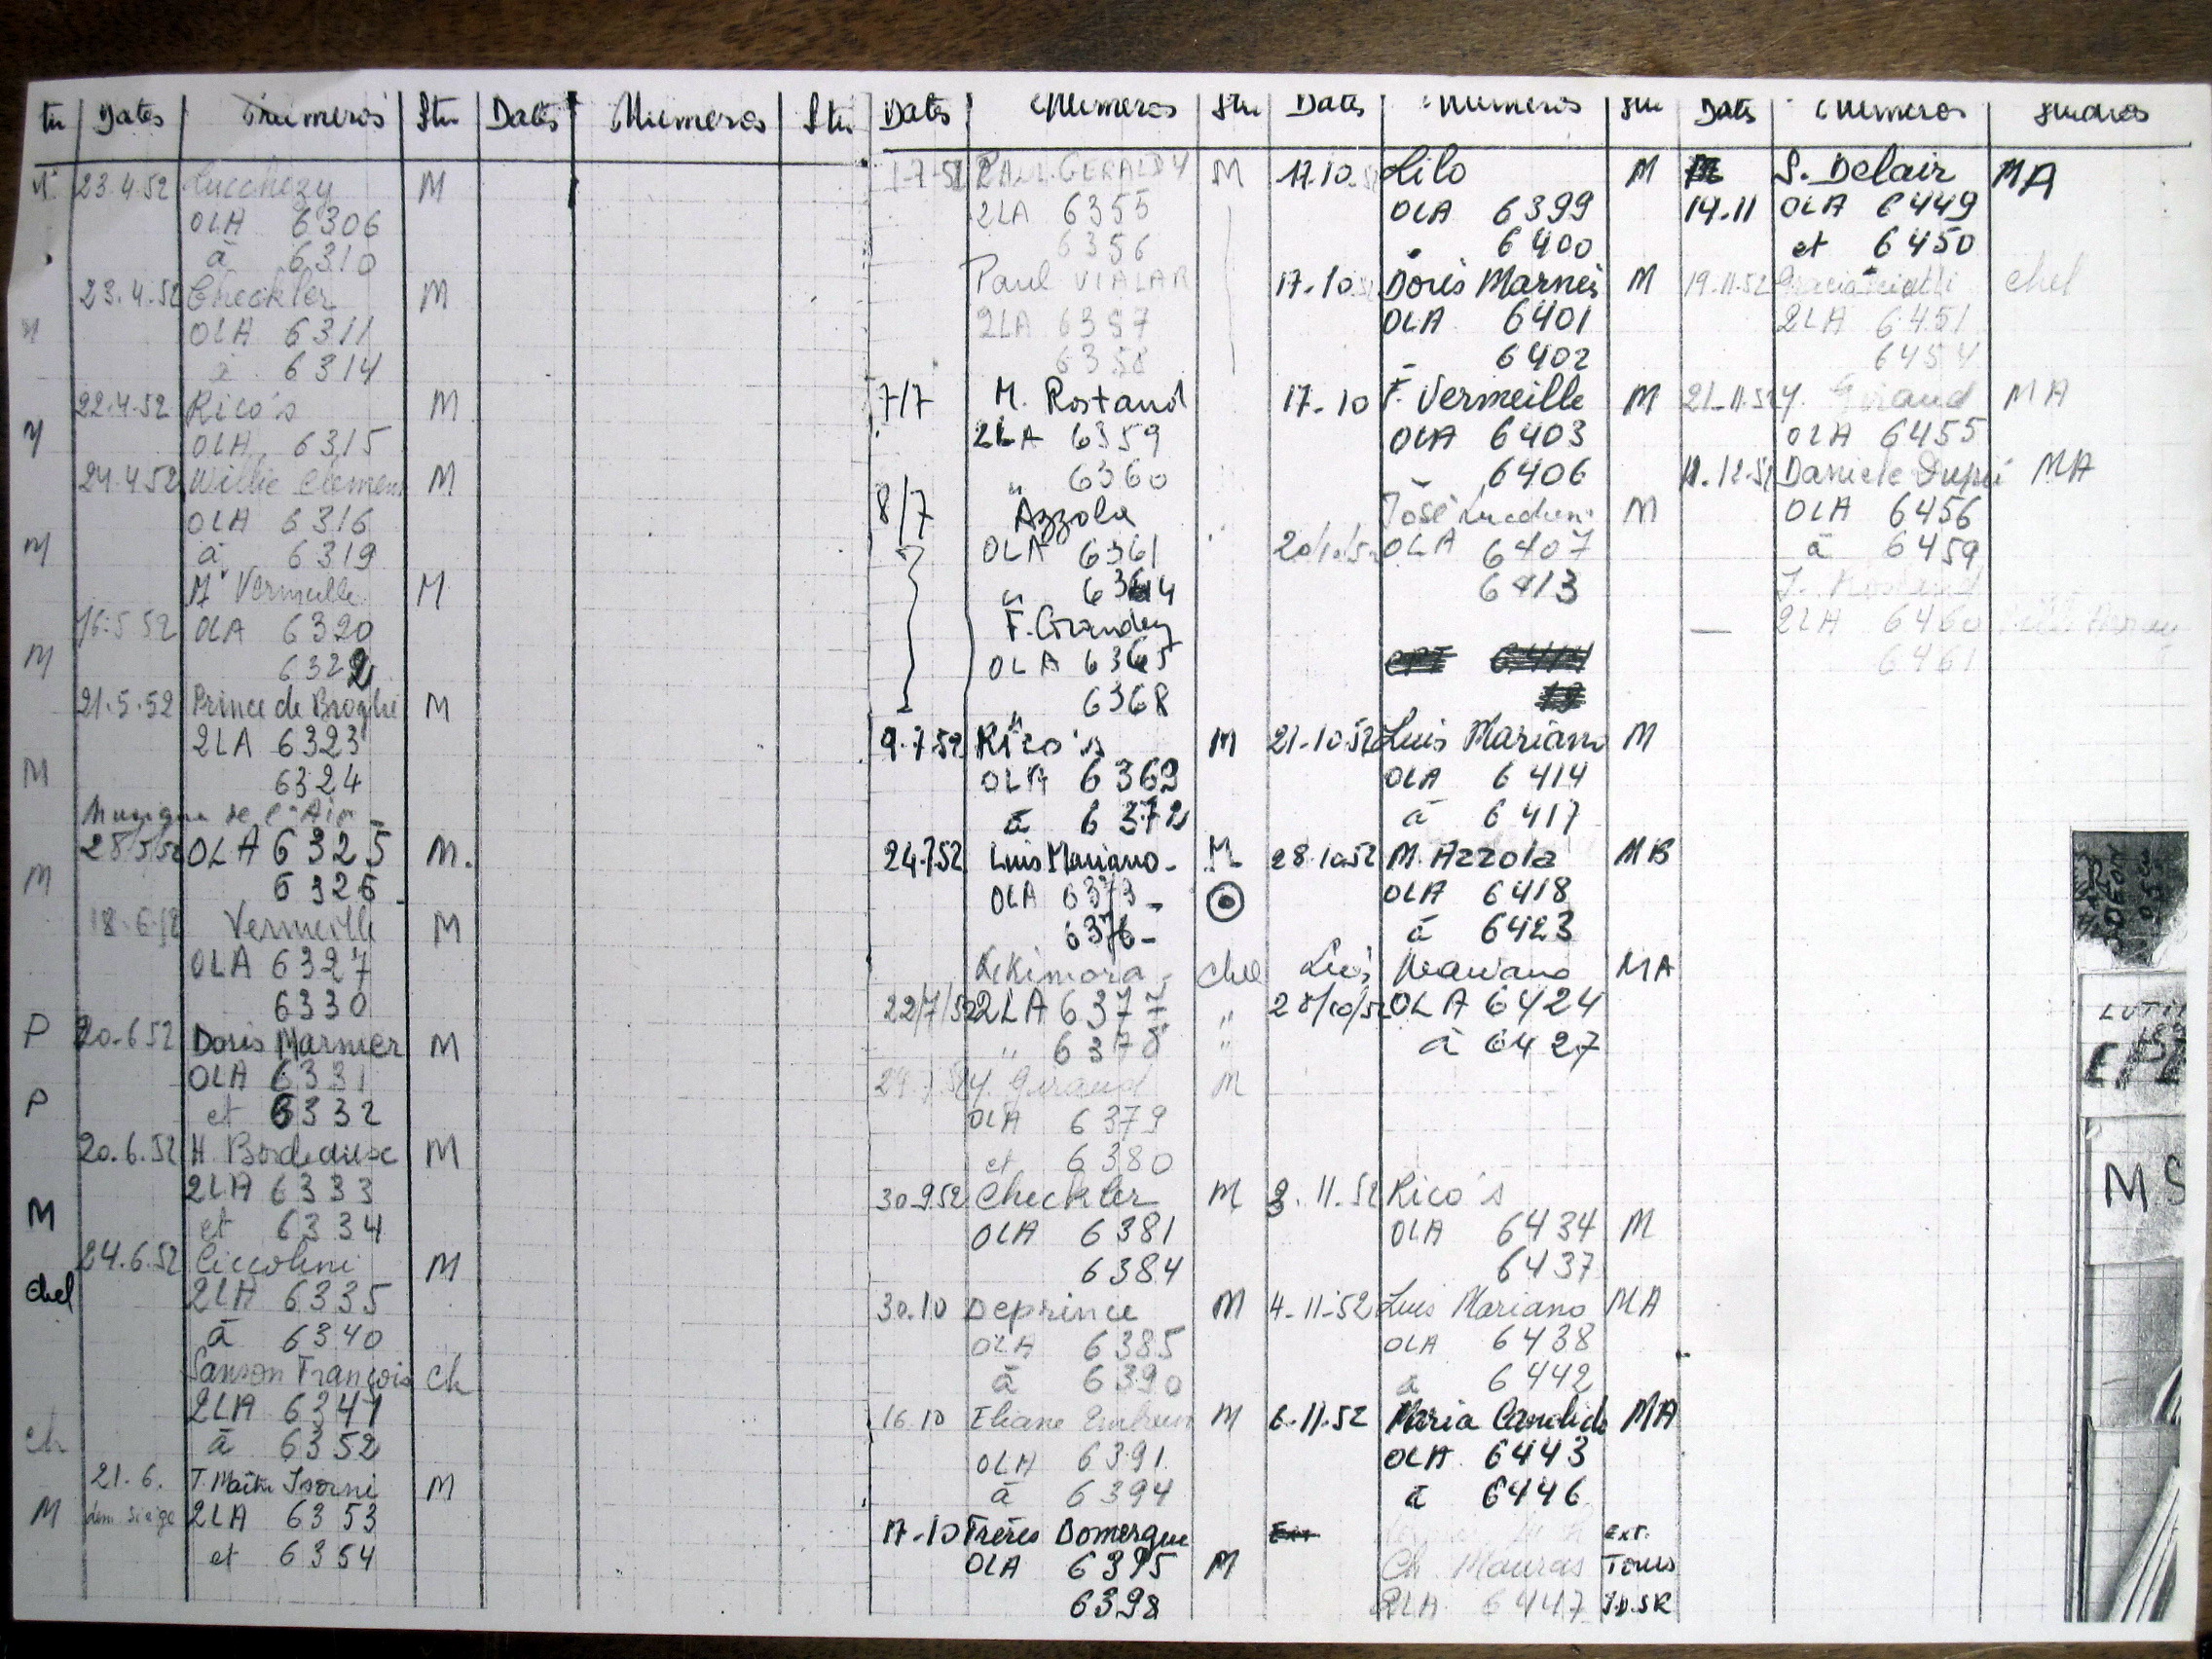 tu Dates Numeros Stu Dates Numeros Stu
M 23.4.52 Lucchezy M
OLA 6306
à 6310
23.4.52 Checkler M
OLA 6311
à 6314
22.4.52 Rico's M
OLA 6315
24.4.52 Willie Clemen M
OLA 6316
M à 6319
Mr Vermeille M
16.5.52 OLA 6320
M 6322
21.5.52 Prince de Broglie M
2LA 6323
M 6324
Musique de l'Air
28/5/52 OLA 6325 M.
M 6326
18.6.52 Vermeille M
OLA 6327
6330
P 20.6.52 Doris Marnier M
OLA 6331
P et 6332
20.6.52 H. Bordeaux M
2LA 6333
M et 6334
24.6.52 Ciccolini M
Chel 2LA 6335
à 6340
Sanson François Ch
2LA 6347
Ch à 6352
21.6. T. Maître Isorni M
M dem siège 2LA 6353
et 6354
Dates Numeros Stu
1-7-52 PAUL GERALDY M
2LA 6355
6356
Paul VIALAR
2LA 6357
6358
7/7 M. Rostand
2LA 6359
" 6360
8/7 Azzola
OLA 6361
" 6364
F. Grandey
OLA 6365
" 6368
9.7.52 Rico's M
OLA 6369
à 6372
24.7.52 Luis Mariano - M
OLA 6373 -
6376 -
Kikimora Chel
22/7/52 2LA 6377 "
" 6378 "
Y. Giraud M
OLA 6379
et 6380
30.9.52 Checkler M
OLA 6381
6384
30.10 Deprince M
OLA 6385
à 6390
16.10 Eliane Embrun M
OLA 6391
à 6394
17-10 Frères Domergue
OLA 6395 M
6398
Dates Numeros Stu
17.10.52 Lilo M
OLA 6399
" 6400
17.10.52 Doris Marnier M
OLA 6401
- 6402
17-10 F. Vermeille M
OLA 6403
6406
José Lucchesi M
20/10/52 OLA 6407
6413
21-10.52 Luis Mariano M
OLA 6414
à 6417
28.10.52 M. Azzola MB
OLA 6418
à 6423
Luis Mariano MA
28/10/52 OLA 6424
à 6427
3.11.52 Rico's
OLA 6434 M
6437
4-11-52 Luis Mariano MA
OLA 6438
à 6442
6-11-52 Maria Candido MA
OLA 6443
à 6446
Ext.
Ch Mauras Tours
2LA 6447
Dates Numeros Studios
S. Delair MA
14.11 OLA 6449
et 6450
19.11.52 Chel
2LA 6451
6454
21-11.52 Y. Giraud MA
OLA 6455
11.12.52 Daniele Dupré MA
OLA 6456
à 6459
J. Rostand
— 2LA 6460
6461
ODEON
MS